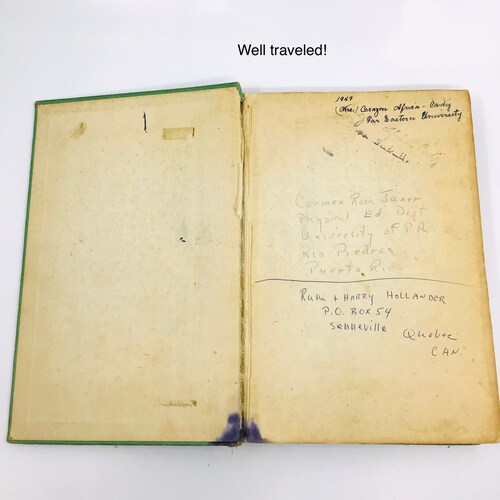 Well traveled!
1949
(Mrs.) Corazon Africa - Cardiz
Far Eastern University
Carmen Rosa Janer
Physical Ed Dept
University of P.R
Rio Piedras
Puerto Rico
Ruth + HARRY HOLLANDER
P.O. BOX 54
Senneville
Quebec
CAN.